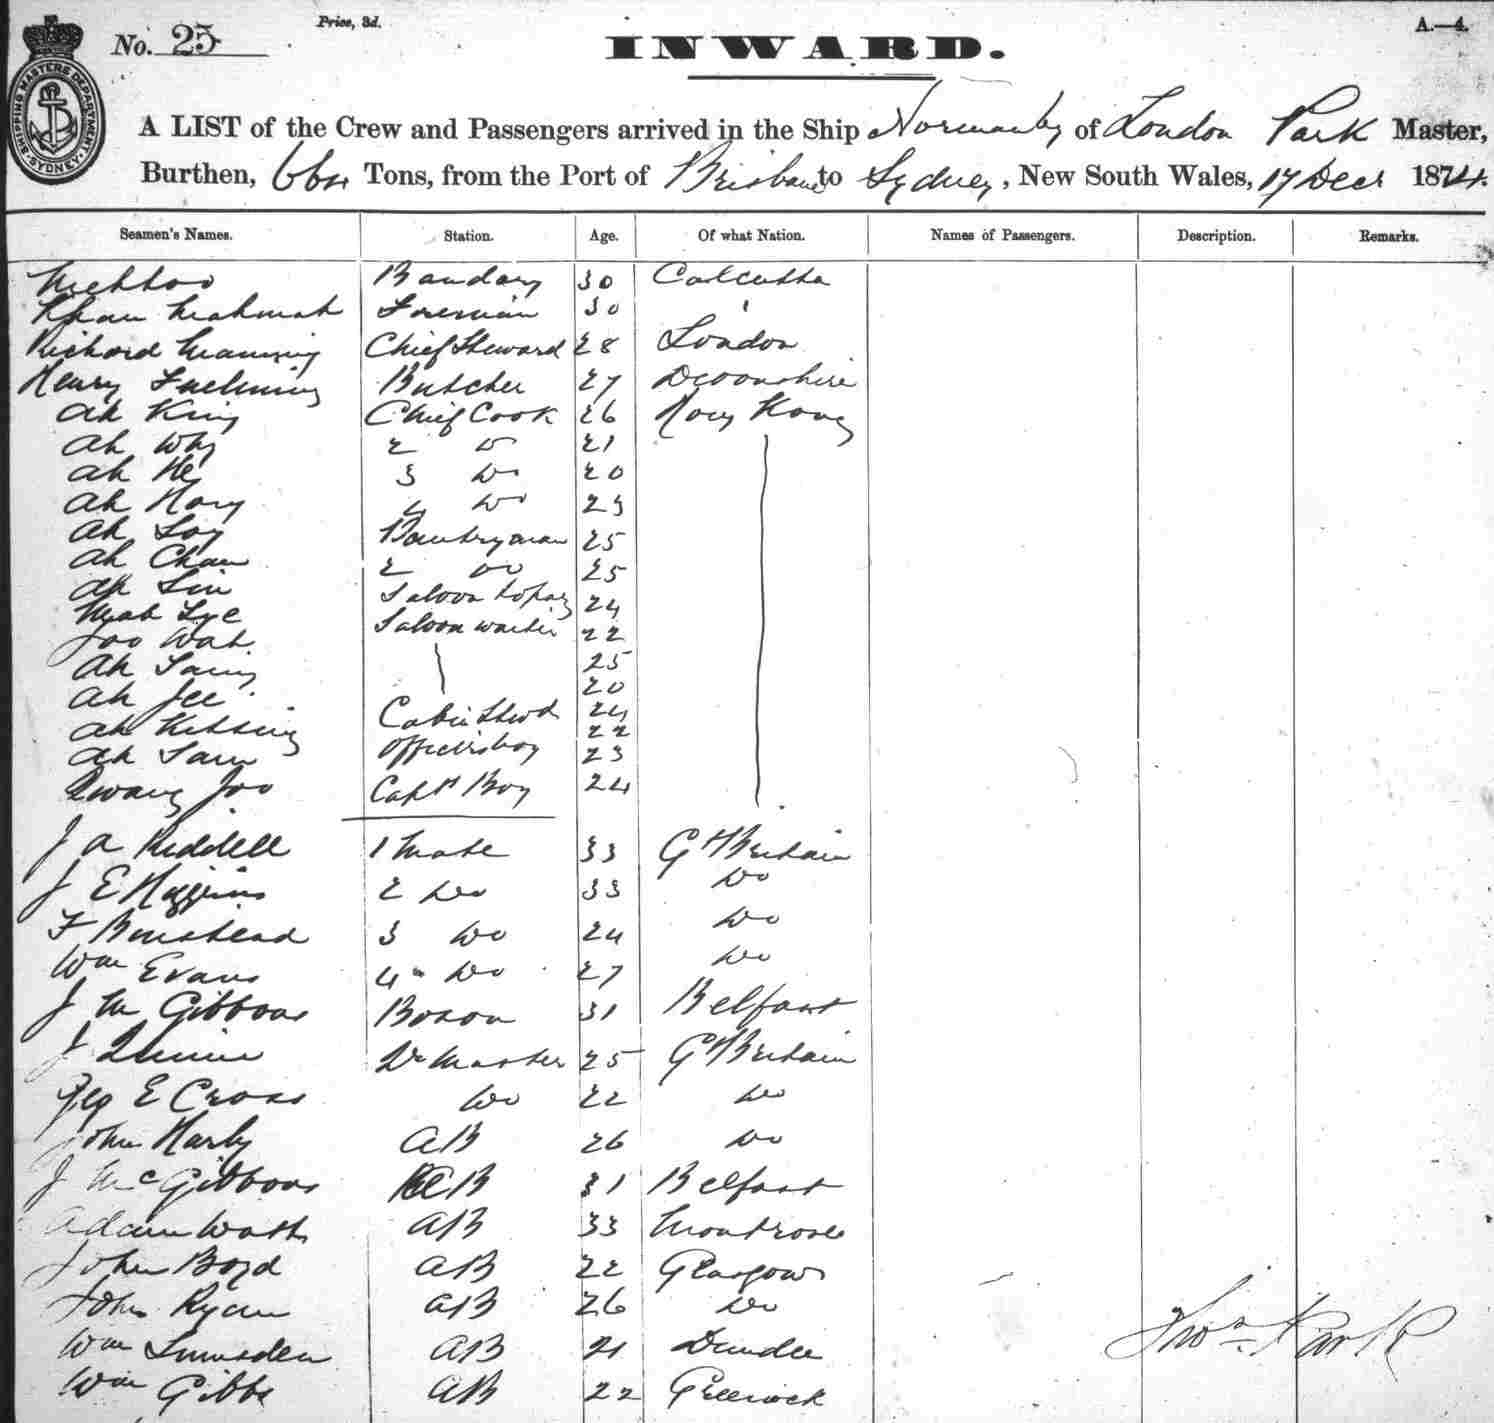 No. 25
Price, 3d.
INWARD.
A.—4.
SHIPPING MASTERS DEPARTMENT SYDNEY
A LIST of the Crew and Passengers arrived in the Ship Normanby of London Park Master,
Burthen, Tons, from the Port of Brisbane to Sydney, New South Wales, 17 Decr 1874.
Seamen's Names. Station. Age. Of what Nation. Names of Passengers. Description. Remarks.
30 Calcutta
Khan Fireman 30
Richard Manning Chief Steward 28 London
Henry Butcher 27 Devonshire
Ah King Chief Cook 26 Hong Kong
Ah Why 2 Do 21
Ah He 3 Do 20
Ah Hong 4 Do 23
Ah Loy Pantryman 25
Ah Chan 2 Do 25
Ah Lin Saloon 24
Lye Saloon waiter 22
Joo Wah 25
Ah 20
Ah Jee Cabin Stewd 24
Ah 22
Ah Sam Officers boy 23
Joo Capt Boy 24
J A Riddell 1 Mate 33 Gt Britain
J E Higgins 2 Do 33 Do
F Binstead 3 Do 24 Do
Wm Evans 4 Do 27 Do
J M Gibbons Boson 31 Belfast
J 25 Gt Britain
Geo E Cross Do 22 Do
John Harby AB 26 Do
J McGibbons AB 31 Belfast
Adam Watts AB 33 Montrose
John Boyd AB 22 Glasgow
John Ryan AB 26 Do
Wm Lumsden AB 21 Dundee
Wm Gibbs AB 22 Greenock
Thos Park